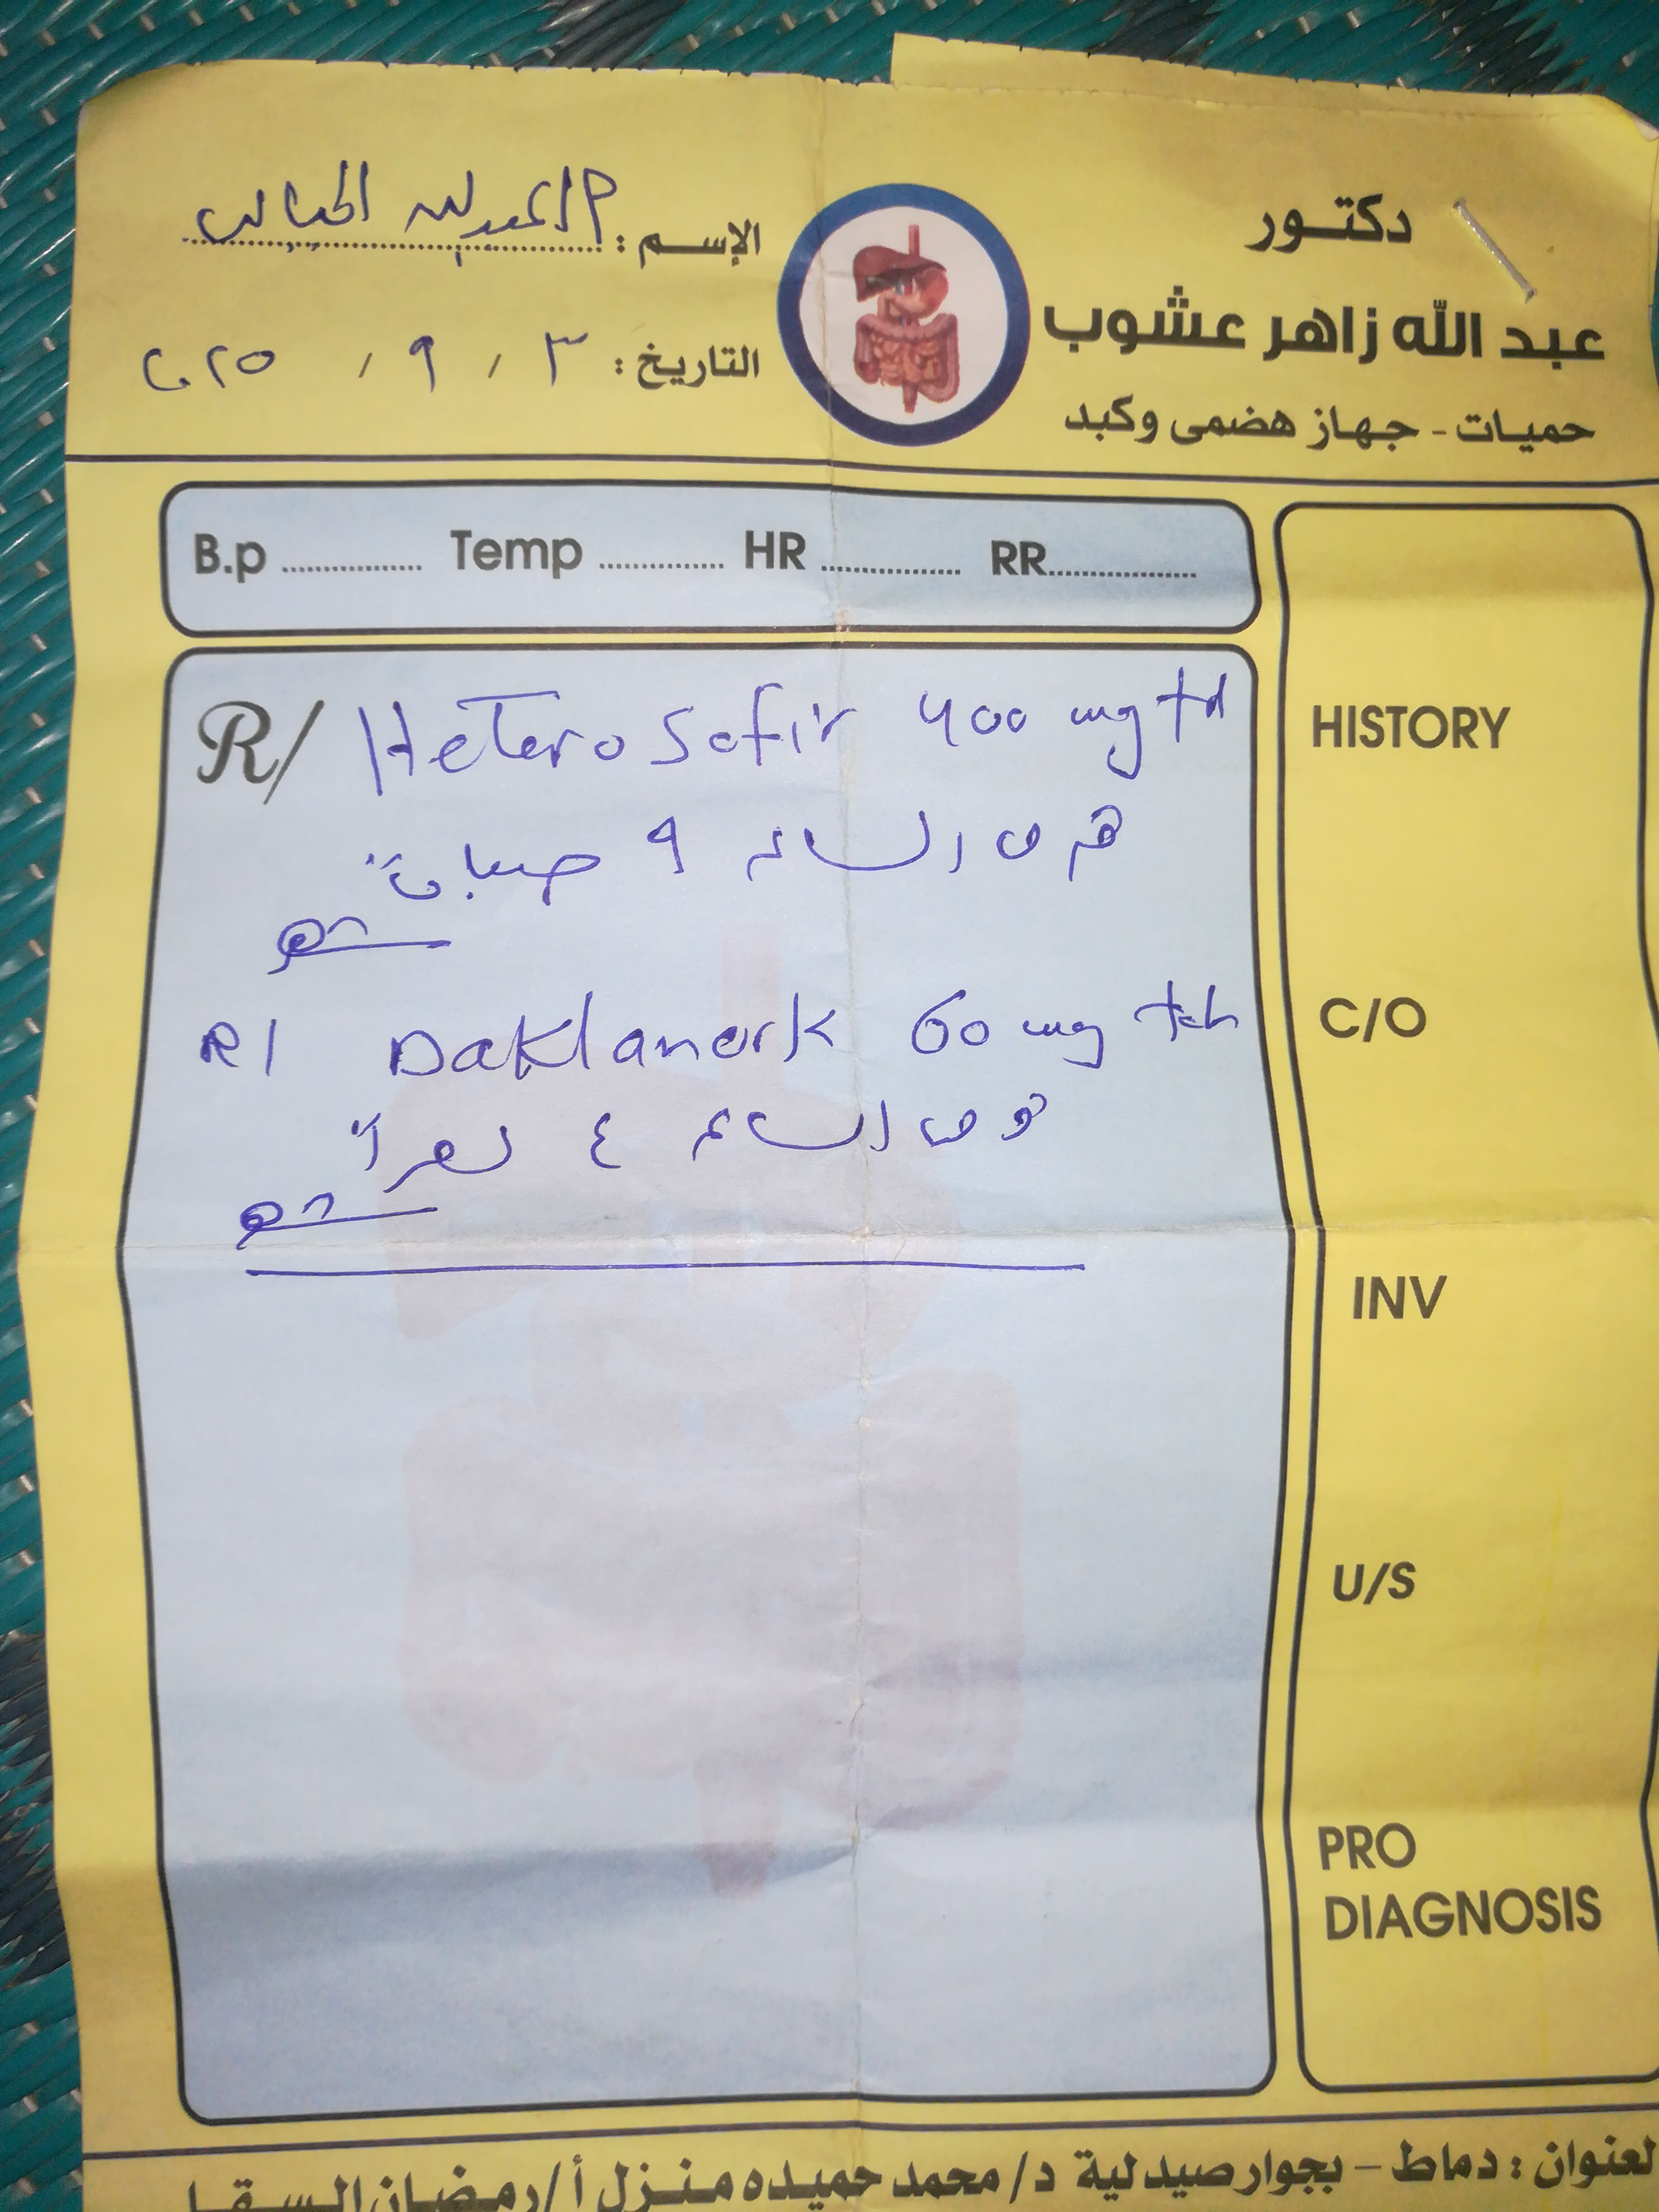 دكتور
عبد الله زاهر عشوب
حميات - جهاز هضمى وكبد
الإسم :
التاريخ : ٣ / ٩ / ٢٠٢٥
B.p ........... Temp ........... HR ........... RR...........
R/ Heterosofir 400 mg
قرص الساعه ٩ صباحاً
R/ Daklanork 60 mg
قرص الساعه ٤ عصراً
HISTORY
C/O
INV
U/S
PRO
DIAGNOSIS
لعنوان : دماط - بجوار صيدلية د/ محمد حميده منزل أ/ رمضان السقا